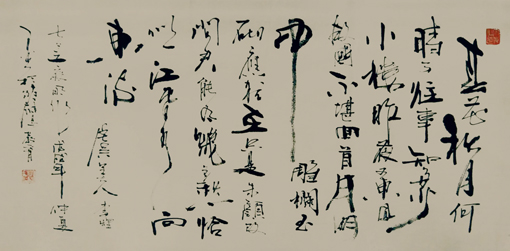 春花秋月何
時了往事知多少
小樓昨夜又東風
故國不堪回首月明
中雕欄玉
砌應猶在只是朱顏改
問君能有幾多愁恰
似一江春水向
東流
虞美人李煜